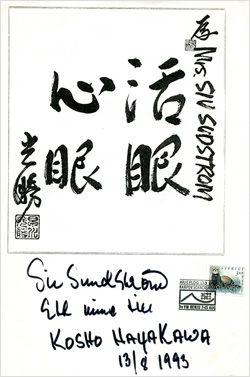 為 Mrs. SIV SUNDSTROM
活眼
心眼
光勝
Siv Sundström
Ett minne till
KOSHO HAYAKAWA
13/8 1993
SVERIGE